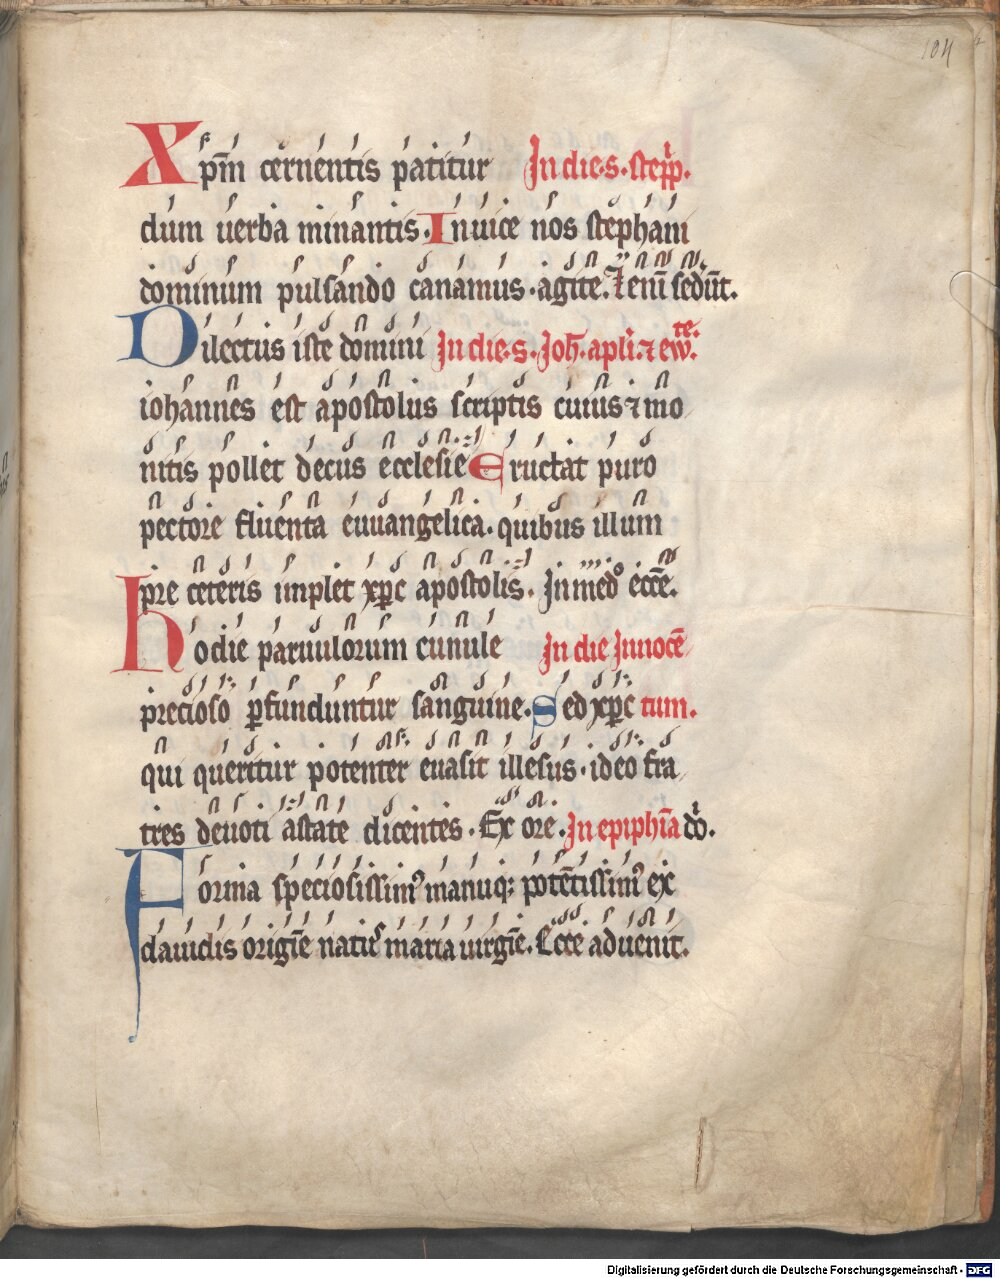 104
Xpm̄ cernentis patitur In die·s·steph.
dum uerba minantis. In uice nos stephani
dominum pulsando canamus. agite. Et eni sedūt.
Dilectus iste domini In die·s·Joh. apli. ⁊ ew̄te.
iohannes est apostolus scriptis cuius ⁊ mo
nitis pollet decus ecclesie Eructat puro
pectore fluenta euuangelica. quibus illum
pre ceteris implet xp̄c apostolis. In medº ecce.
hodie paruulorum cunule In die Innocē
precioso ꝑfunduntur sanguine. Sed xp̄c tum.
qui queritur potenter euasit illesus. ideo fra
tres deuoti astate dicentes. Ex ore. In epiphīa do.
Forma speciosissimꝰ manuq; potētissimꝰ ex
dauidis origīe natus maria uirgīe. Ecce aduenit.
Digitalisierung gefördert durch die Deutsche Forschungsgemeinschaft - DFG